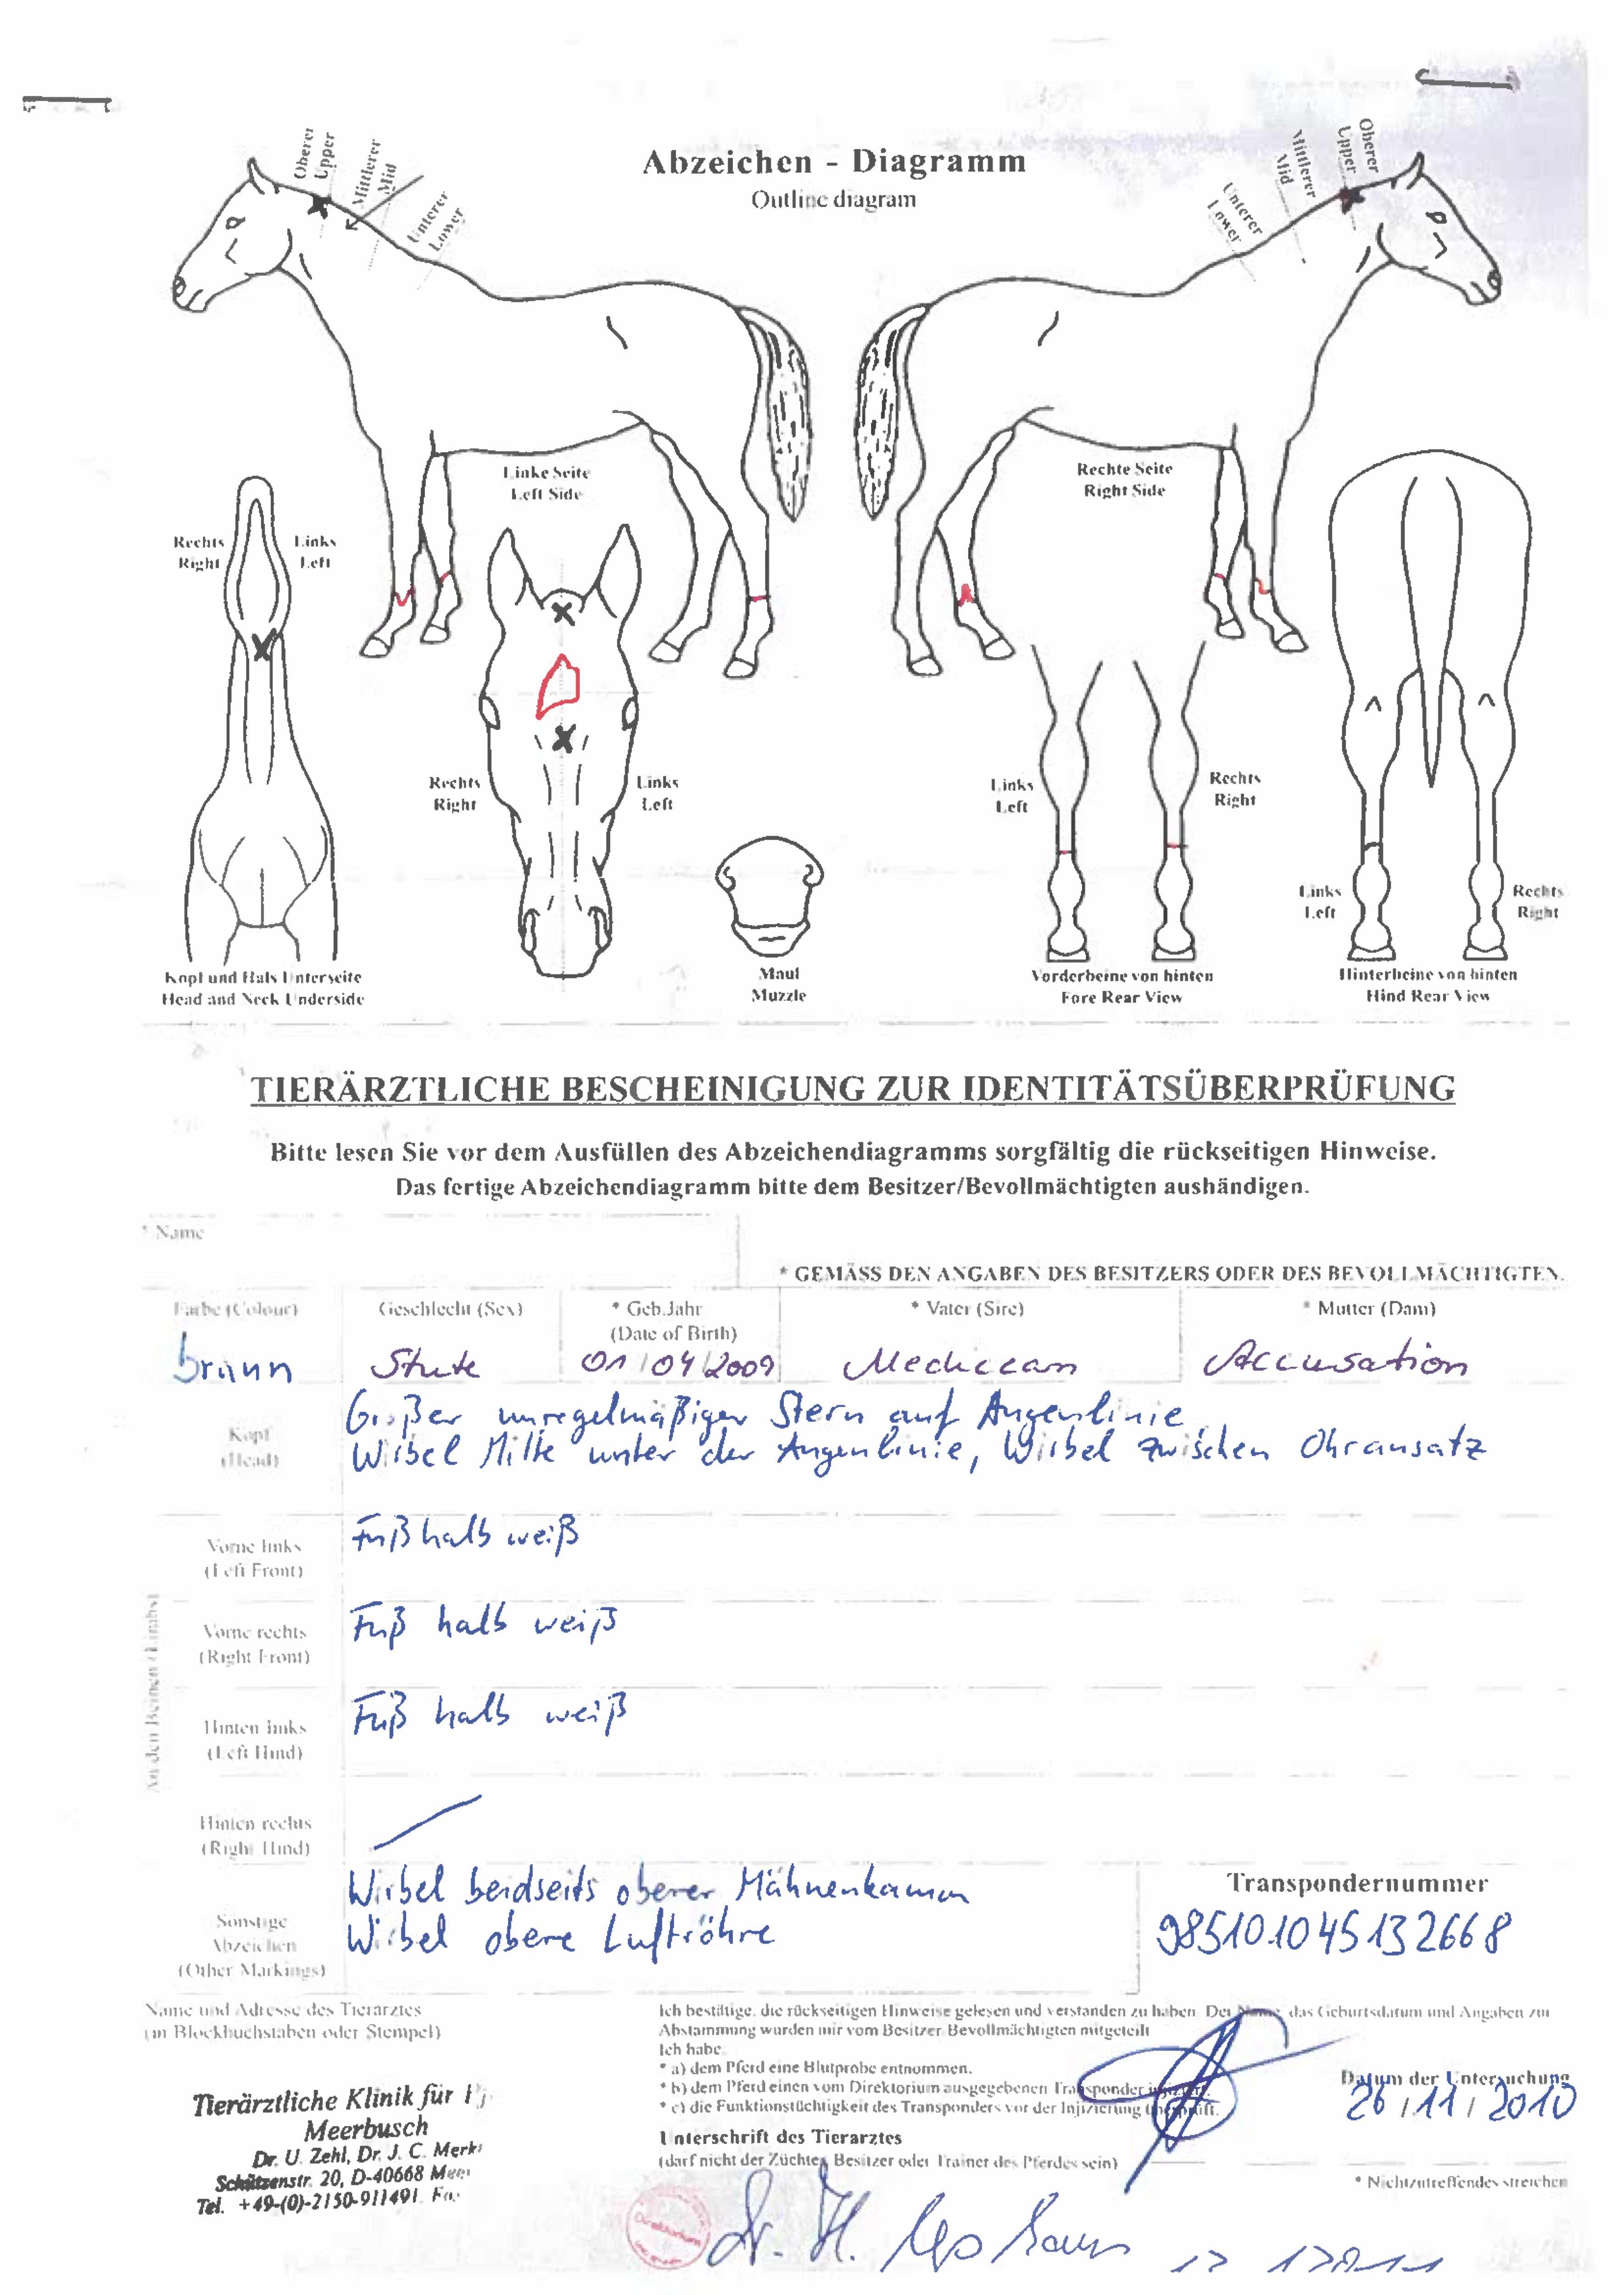 Oberer
Upper
Mittlerer
Mid
Unterer
Lower
Abzeichen - Diagramm
Outline diagram
Unterer
Lower
Mittlerer
Mid
Oberer
Upper
Linke Seite
Left Side
Rechte Seite
Right Side
Rechts
Right
Links
Left
Rechts
Right
Links
Left
Links
Left
Rechts
Right
Links
Left
Rechts
Right
Kopf und Hals Unterseite
Head and Neck Underside
Maul
Muzzle
Vorderbeine von hinten
Fore Rear View
Hinterbeine von hinten
Hind Rear View
TIERÄRZTLICHE BESCHEINIGUNG ZUR IDENTITÄTSÜBERPRÜFUNG
Bitte lesen Sie vor dem Ausfüllen des Abzeichendiagramms sorgfältig die rückseitigen Hinweise.
Das fertige Abzeichendiagramm bitte dem Besitzer/Bevollmächtigten aushändigen.
* Name
* GEMÄSS DEN ANGABEN DES BESITZERS ODER DES BEVOLLMÄCHTIGTEN.
Farbe (Colour) Geschlecht (Sex) * Geb.Jahr * Vater (Sire) * Mutter (Dam)
(Date of Birth)
braun Stute 01/04/2009 Mediccan Accusation
Kopf
(Head)
Großer unregelmäßiger Stern auf Augenlinie
Wirbel Mitte unter der Augenlinie, Wirbel zwischen Ohransatz
An den Beinen (Limbs)
Vorne links
(Left Front)
Fuß halb weiß
Vorne rechts
(Right Front)
Fuß halb weiß
Hinten links
(Left Hind)
Fuß halb weiß
Hinten rechts
(Right Hind)
Sonstige
Abzeichen
(Other Markings)
Wirbel beidseits oberer Mähnenkamm
Wirbel obere Luftröhre
Transpondernummer
985101045132668
Name und Adresse des Tierarztes
(in Blockbuchstaben oder Stempel)
Tierärztliche Klinik für
Meerbusch
Dr. U. Zehl, Dr. J. C.
Schützenstr. 20, D-40668
Tel. +49-(0)-2150-911491
Ich bestätige, die rückseitigen Hinweise gelesen und verstanden zu haben. Der Name, das Geburtsdatum und Angaben zur
Abstammung wurden mir vom Besitzer Bevollmächtigten mitgeteilt
Ich habe
* a) dem Pferd eine Blutprobe entnommen.
* b) dem Pferd einen vom Direktorium ausgegebenen Transponder injiziert.
* c) die Funktionstüchtigkeit des Transponders vor der Injizierung überprüft.
Unterschrift des Tierarztes
(darf nicht der Züchter, Besitzer oder Trainer des Pferdes sein)
Datum der Untersuchung
26/11/2010
* Nichtzutreffendes streichen
Direktorium
Dr. H.